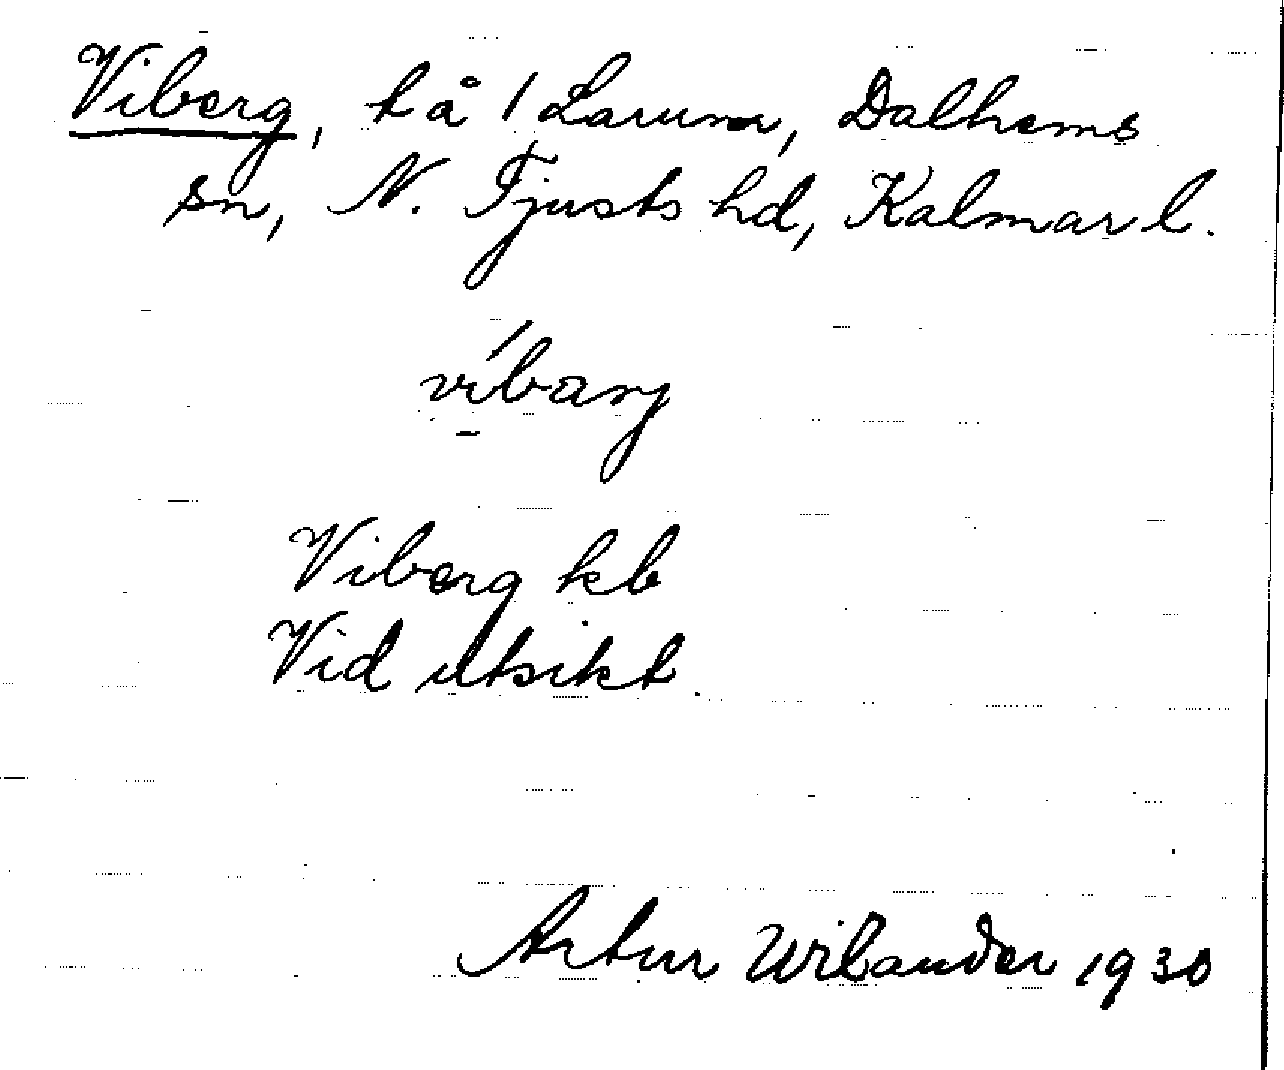 Viberg, t å /Laruna, Dalhems
sn, N. Tjusts hd, Kalmar l.
víbarj
Viberg kb
Vid utsikt.
Artur Wilander 1930